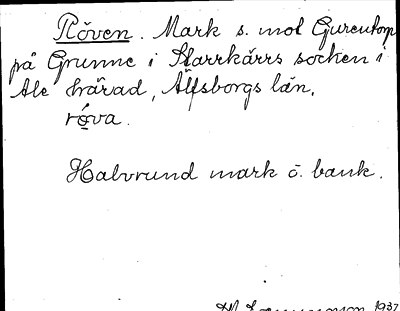 Röven. Mark s. mot Gurentorp
på Grunne i Starrkärrs socken i
Ale härad, Älfsborgs län.
röva.
Halvrund mark o. bank.
1937